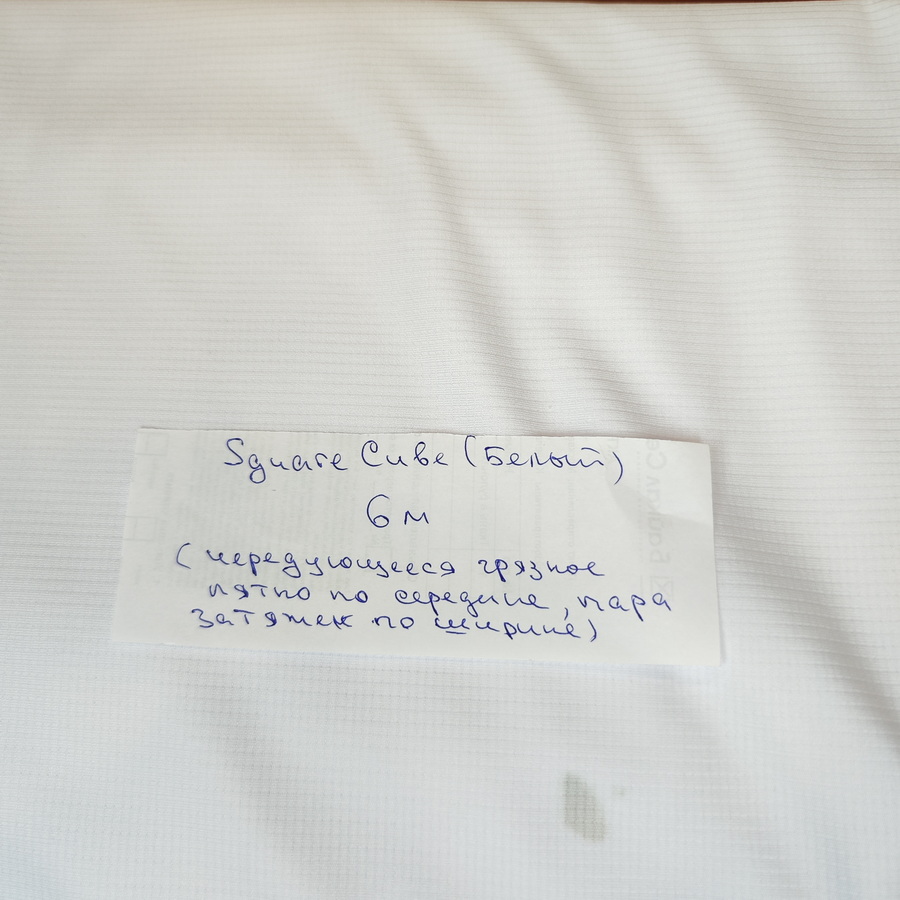 Square Cube (Белый)
6 м
(чередующееся грязное
пятно по середине, пара
затяжек по ширине)